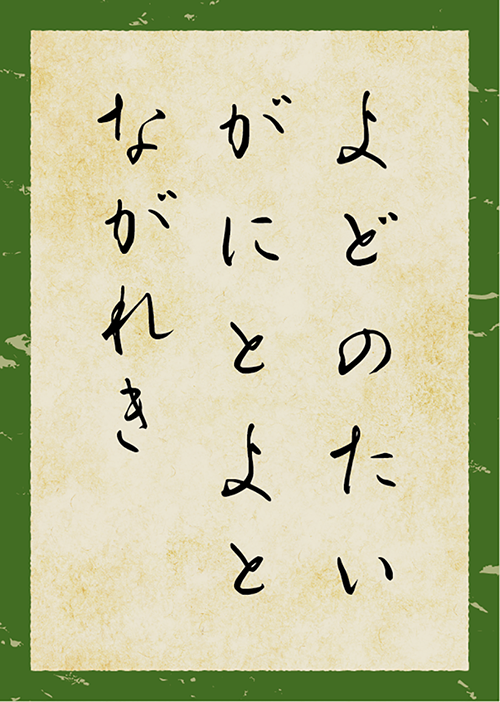 よどのたい
がにとよと
ながれき